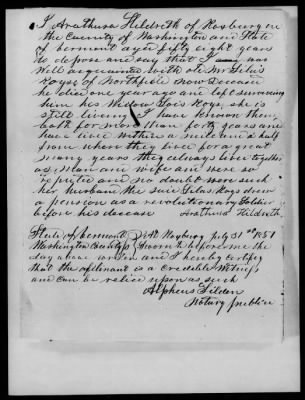 I Arathusa Hildreth of Roxbury in
the County of Washington and State
of Vermont aged fifty eight years
do depose and say that I was
Well acquainted with old Mr Silas
Keyes of Northfield now deceased
he died one year ago and left surviving
him his Widow Lois Keys, she is
still living I have known them
both for more than forty years and
have lived within a mile and a half
from where they lived for a great
many years they always lived together
as Man and wife and were so
reputed and no doubt were such
her husband the said Silas Keys drew
a pension as a revolutionary Soldier
before his decease Arathusa Hildreth
State of Vermont } At Roxbury July 31st 1851
Washington County ss } Sworn to before me the
day above written and I hereby certify
that the affidavit is a credible Witness
and can be relied upon as such
Alpheus Tilden
Notary public